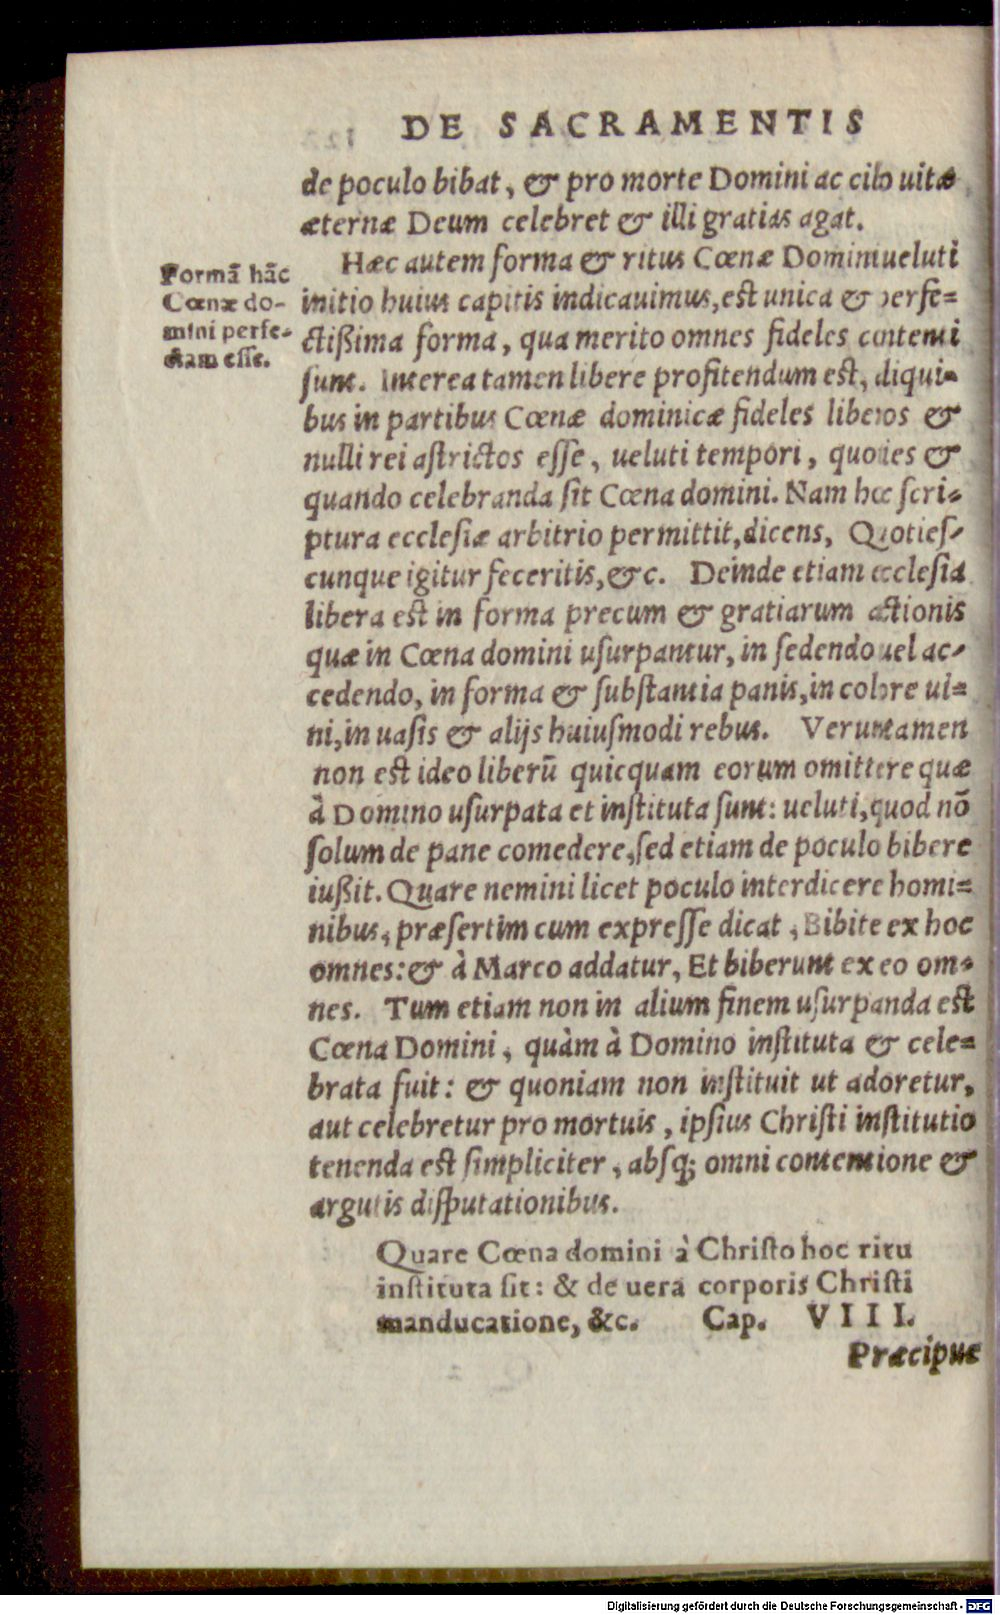 DE SACRAMENTIS
de poculo bibat, & pro morte Domini ac cibo uitæ
æternæ Deum celebret & illi gratias agat.
Hæc autem forma & ritus Cœnæ Domini ueluti
initio huius capitis indicauimus, est unica & perfe=
ctißima forma, qua merito omnes fideles contenti
sunt. Interea tamen libere profitendum est, aliqui=
bus in partibus Cœnæ dominicæ fideles liberos &
nulli rei astrictos esse, ueluti tempori, quoties &
quando celebranda sit Cœna domini. Nam hoc scri=
ptura ecclesiæ arbitrio permittit, dicens, Quoties=
cunque igitur feceritis, &c. Deinde etiam ecclesia
libera est in forma precum & gratiarum actionis
quæ in Cœna domini usurpantur, in sedendo uel ac=
cedendo, in forma & substantia panis, in colore ui=
ni, in uasis & alijs huiusmodi rebus. Veruntamen
non est ideo liberũ quicquam eorum omittere quæ
à Domino usurpata et instituta sunt: ueluti, quod nõ
solum de pane comedere, sed etiam de poculo bibere
iußit. Quare nemini licet poculo interdicere homi=
nibus, præsertim cum expresse dicat, Bibite ex hoc
omnes: & à Marco addatur, Et biberunt ex eo om=
nes. Tum etiam non in alium finem usurpanda est
Cœna Domini, quàm à Domino instituta & cele=
brata fuit: & quoniam non instituit ut adoretur,
aut celebretur pro mortuis, ipsius Christi institutio
tenenda est simpliciter, absq; omni contentione &
argutis disputationibus.
Formã hãc
Cœnæ do-
mini perfe-
ctam esse.
Quare Cœna domini à Christo hoc ritu
instituta sit: & de uera corporis Christi
manducatione, &c. Cap. VIII.
Præcipue
Digitalisierung gefördert durch die Deutsche Forschungsgemeinschaft - DFG